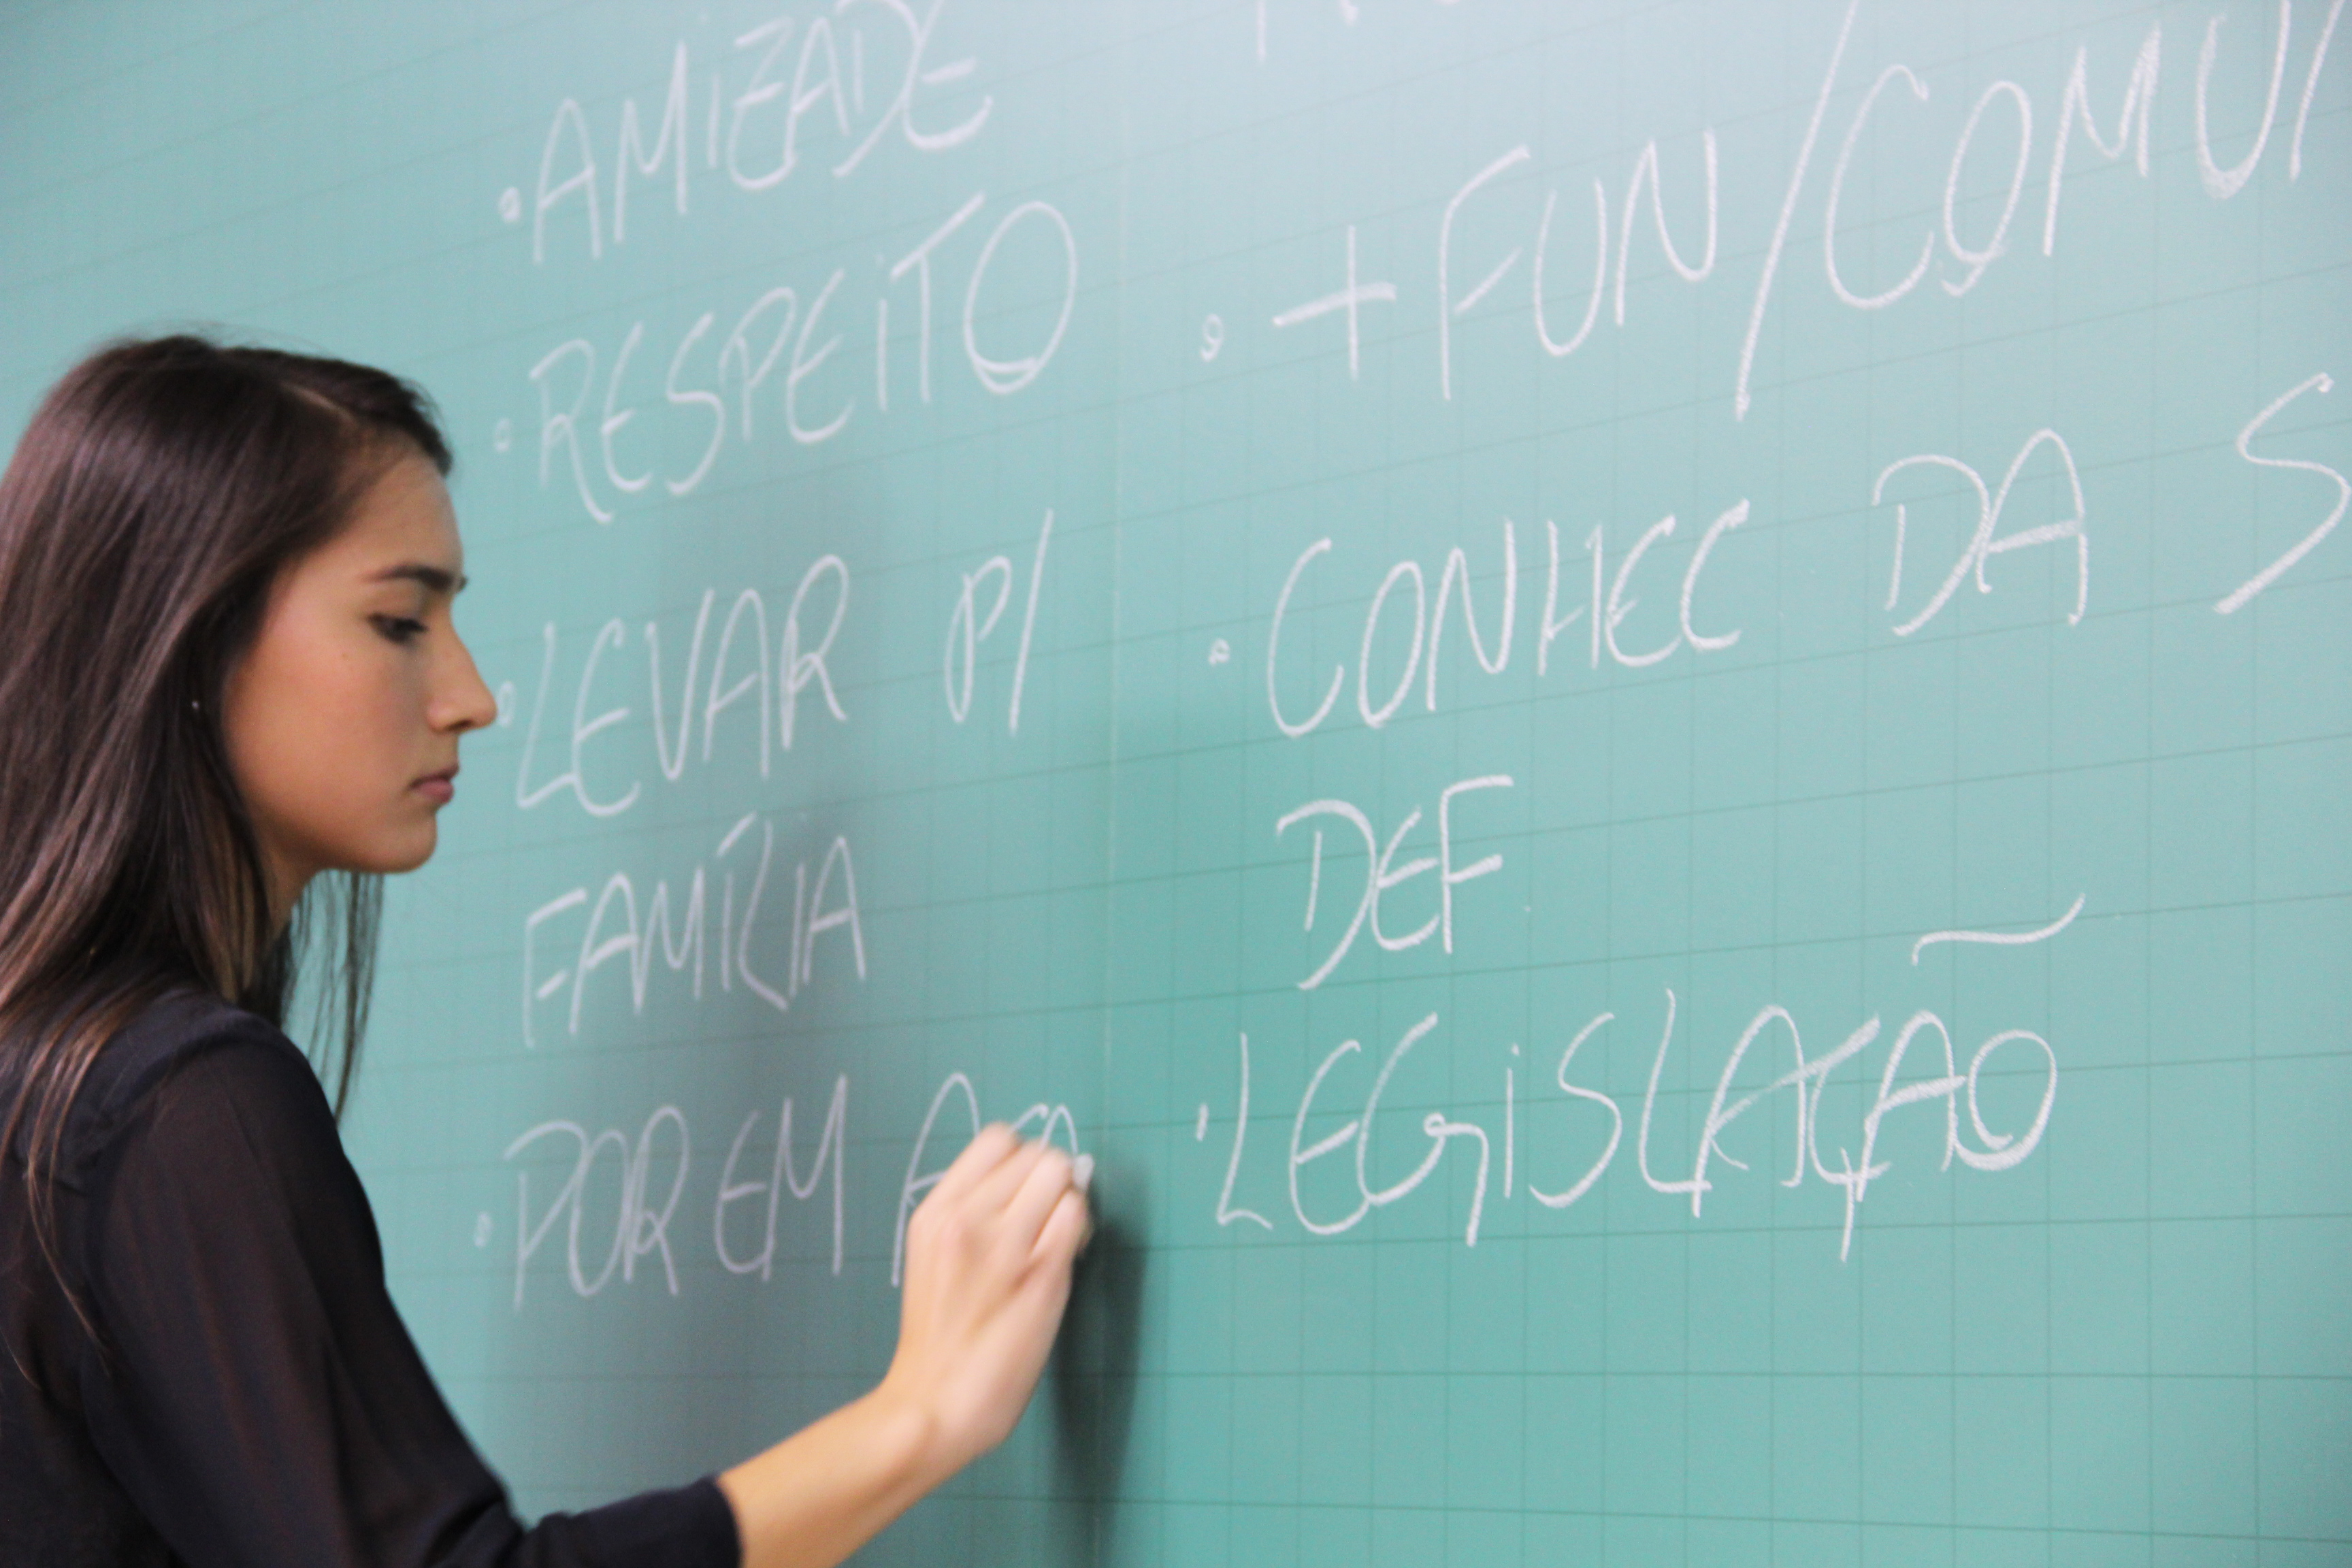 • AMIZADE
• RESPEITO
• LEVAR P/
FAMÍLIA
• POR EM
• + FUN/COMU
• CONHEC DA S
DEF
• LEGISLAÇÃO